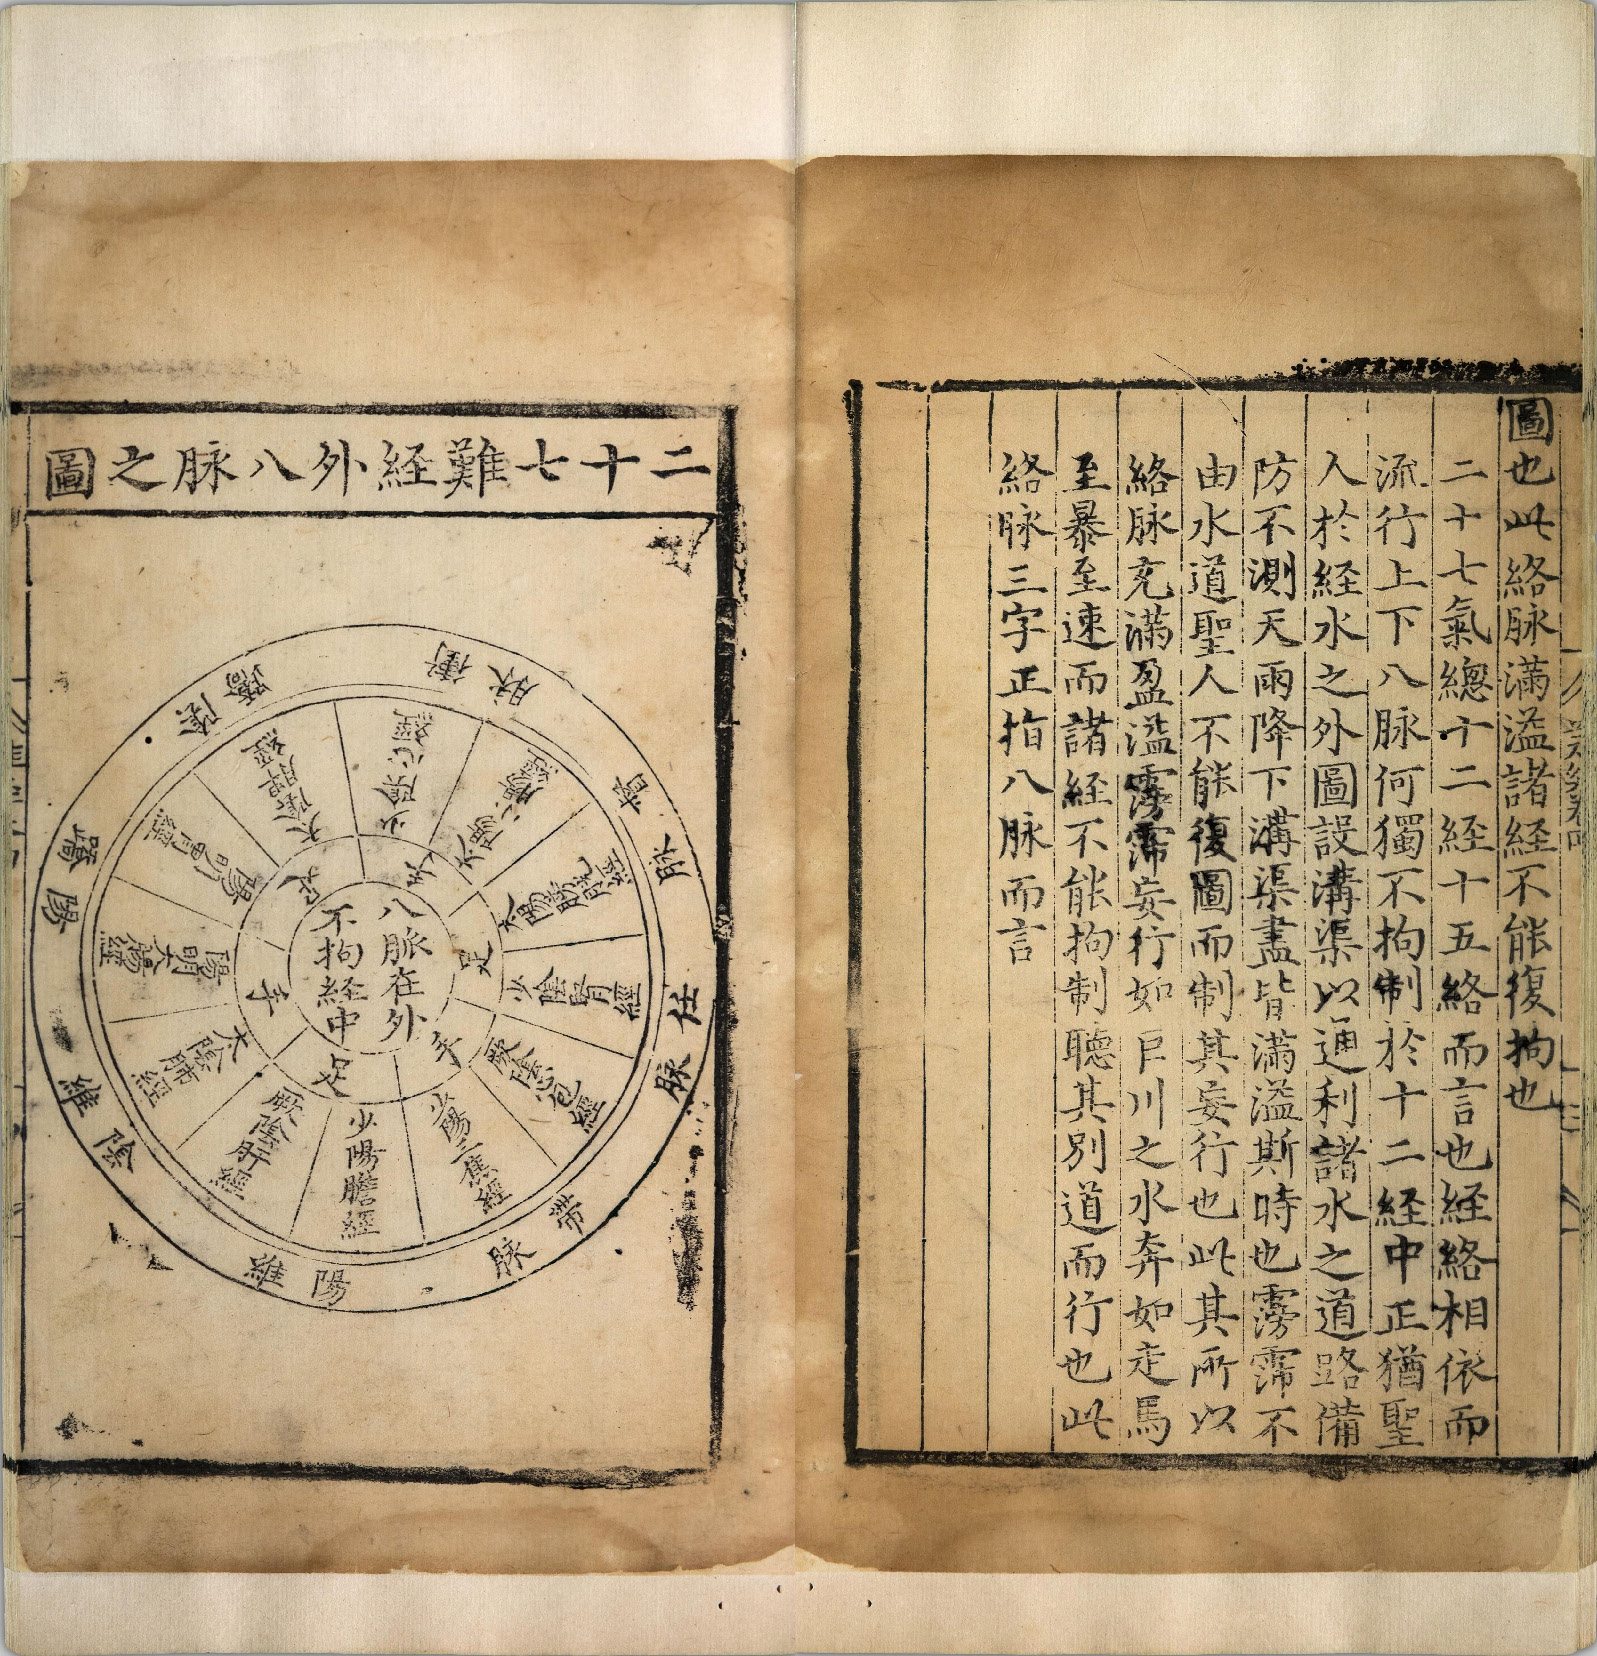 圖也此絡脉滿溢諸経不能復拘也
二十七氣總十二経十五絡而言也経絡相依而
流行上下八脉何獨不拘制於十二経中正猶聖
人於経水之外圖設溝渠以通利諸水之道路備
防不測天雨降下溝渠盡皆滿溢斯時也霶霈不
由水道聖人不能復圖而制其妄行也此其所以
絡脉充滿盈溢霶霈妄行如巨川之水奔如走馬
至暴至速而諸経不能拘制聽其別道而行也此
絡脉三字正指八脉而言
二十七難経外八脉之圖
八脈在外
不拘経中
足
手
足
手
足
手
督脉
任脉
帶脉
陽維
陰維
陽蹻
陰蹻
衝脉
太陽膀胱經
少陰腎經
厥陰心包經
少陽三焦經
少陽膽經
厥陰肝經
太陰肺經
陽明大腸經
陽明胃經
太陰脾經
少陰心經
太陽小腸經